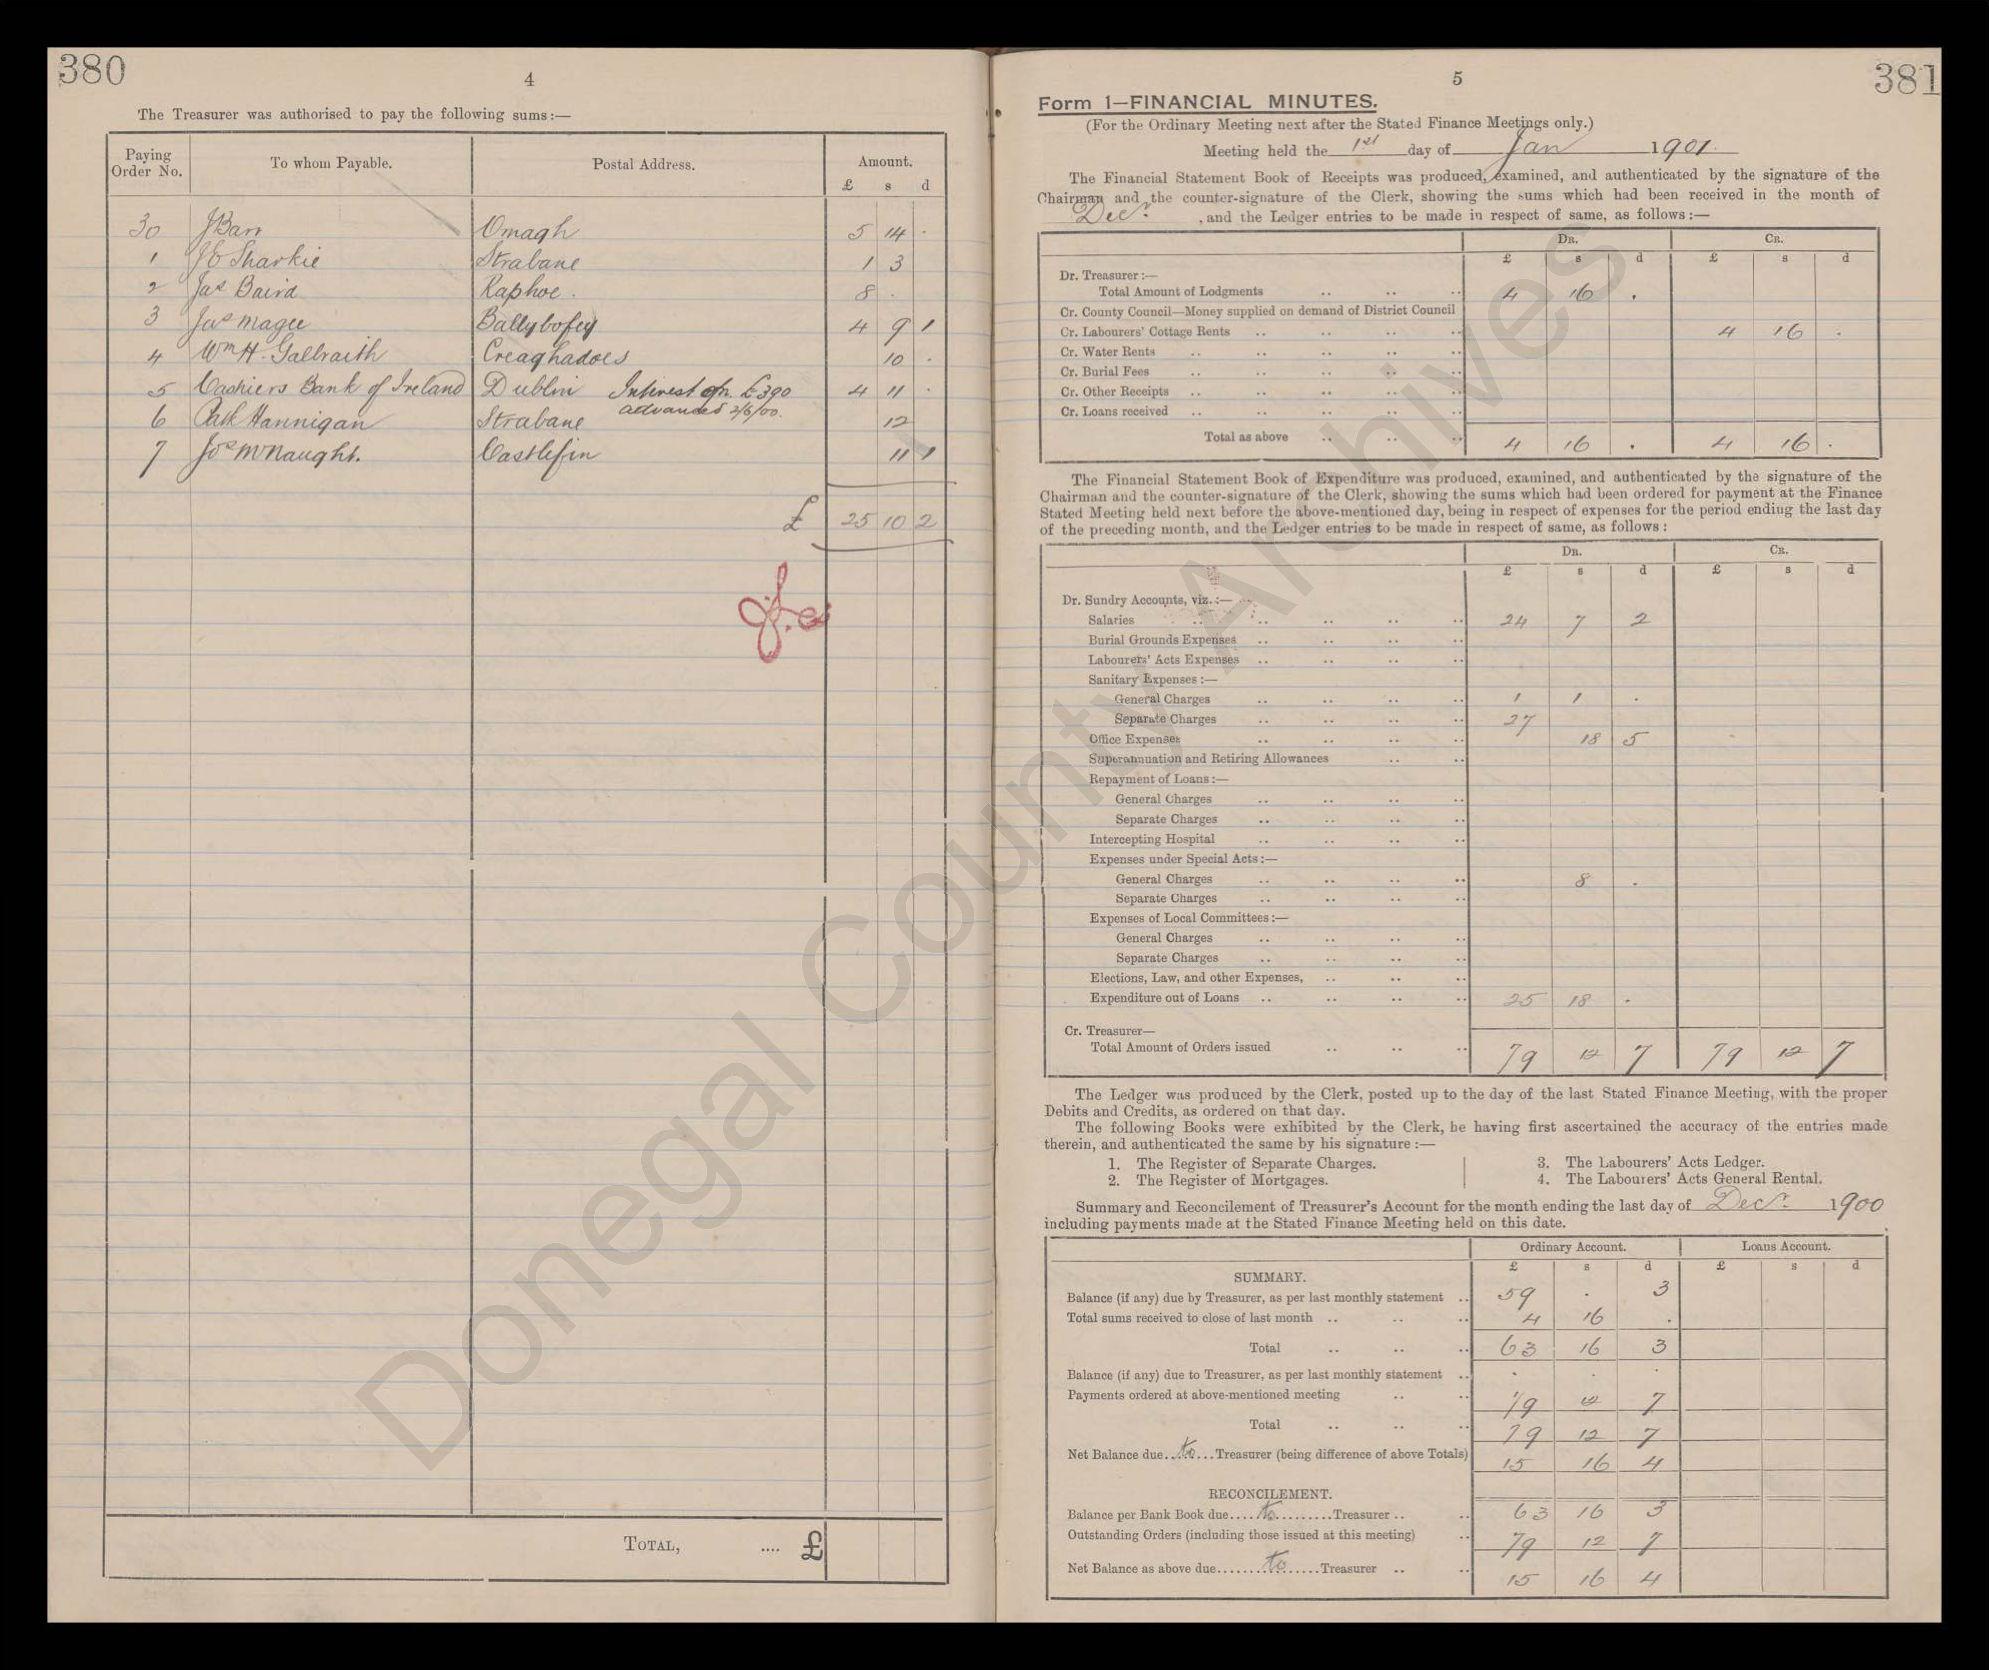 380
4
The Treasurer was authorised to pay the following sums:—
Paying Order No. To whom Payable. Postal Address. Amount.
£ s d
30 J Barr Omagh 5 14 .
1 J E Sharkie Strabane 1 3
2 Jas Baird Raphoe . 8 .
3 Jas Magee Ballybofey 4 9 1
4 Wm H. Galbraith Creaghadoes 10 .
5 Cashiers Bank of Ireland Dublin Interest on £390 4 11 .
advanced 2/6/00.
6 Patk Hannigan Strabane 12
7 Jos McNaught. Castlefin 11 1
£ 25 10 2
TOTAL, .... £
381
5
Form 1—FINANCIAL MINUTES.
(For the Ordinary Meeting next after the Stated Finance Meetings only.)
Meeting held the 1st day of Jan 1901.
The Financial Statement Book of Receipts was produced, examined, and authenticated by the signature of the
Chairman and the counter-signature of the Clerk, showing the sums which had been received in the month of
Decr. , and the Ledger entries to be made in respect of same, as follows:—
DR. CR.
£ s d £ s d
Dr. Treasurer:—
Total Amount of Lodgments .. .. .. 4 16 .
Cr. County Council—Money supplied on demand of District Council
Cr. Labourers' Cottage Rents .. .. .. .. 4 16 .
Cr. Water Rents .. .. .. ..
Cr. Burial Fees .. .. .. ..
Cr. Other Receipts .. .. .. .. ..
Cr. Loans received .. .. .. .. ..
Total as above .. .. .. 4 16 . 4 16 .
The Financial Statement Book of Expenditure was produced, examined, and authenticated by the signature of the
Chairman and the counter-signature of the Clerk, showing the sums which had been ordered for payment at the Finance
Stated Meeting held next before the above-mentioned day, being in respect of expenses for the period ending the last day
of the preceding month, and the Ledger entries to be made in respect of same, as follows:
DR. CR.
£ s d £ s d
Dr. Sundry Accounts, viz.:—
Salaries .. .. .. .. .. 24 7 2
Burial Grounds Expenses .. .. .. ..
Labourers' Acts Expenses .. .. .. ..
Sanitary Expenses:—
General Charges .. .. .. .. 1 1 .
Separate Charges .. .. .. .. 27
Office Expenses .. .. .. .. 18 5
Superannuation and Retiring Allowances .. ..
Repayment of Loans:—
General Charges .. .. .. ..
Separate Charges .. .. .. ..
Intercepting Hospital .. .. .. ..
Expenses under Special Acts:—
General Charges .. .. .. .. 8 .
Separate Charges .. .. .. ..
Expenses of Local Committees:—
General Charges .. .. .. ..
Separate Charges .. .. .. ..
Elections, Law, and other Expenses, .. .. ..
Expenditure out of Loans .. .. .. .. 25 18 .
Cr. Treasurer—
Total Amount of Orders issued .. .. .. 79 12 7 79 12 7
The Ledger was produced by the Clerk, posted up to the day of the last Stated Finance Meeting, with the proper
Debits and Credits, as ordered on that day.
The following Books were exhibited by the Clerk, he having first ascertained the accuracy of the entries made
therein, and authenticated the same by his signature:—
1. The Register of Separate Charges. 3. The Labourers' Acts Ledger.
2. The Register of Mortgages. 4. The Labourers' Acts General Rental.
Summary and Reconcilement of Treasurer's Account for the month ending the last day of Decr. 1900
including payments made at the Stated Finance Meeting held on this date.
Ordinary Account. Loans Account.
£ s d £ s d
SUMMARY.
Balance (if any) due by Treasurer, as per last monthly statement .. 59 . 3
Total sums received to close of last month .. .. .. 4 16 .
Total .. .. .. 63 16 3
Balance (if any) due to Treasurer, as per last monthly statement .. . . .
Payments ordered at above-mentioned meeting .. .. 79 12 7
Total .. .. .. 79 12 7
Net Balance due....to....Treasurer (being difference of above Totals) 15 16 4
RECONCILEMENT.
Balance per Bank Book due....to.........Treasurer .. .. 63 16 3
Outstanding Orders (including those issued at this meeting) .. 79 12 7
Net Balance as above due........to......Treasurer .. .. 15 16 4
Donegal County Archives